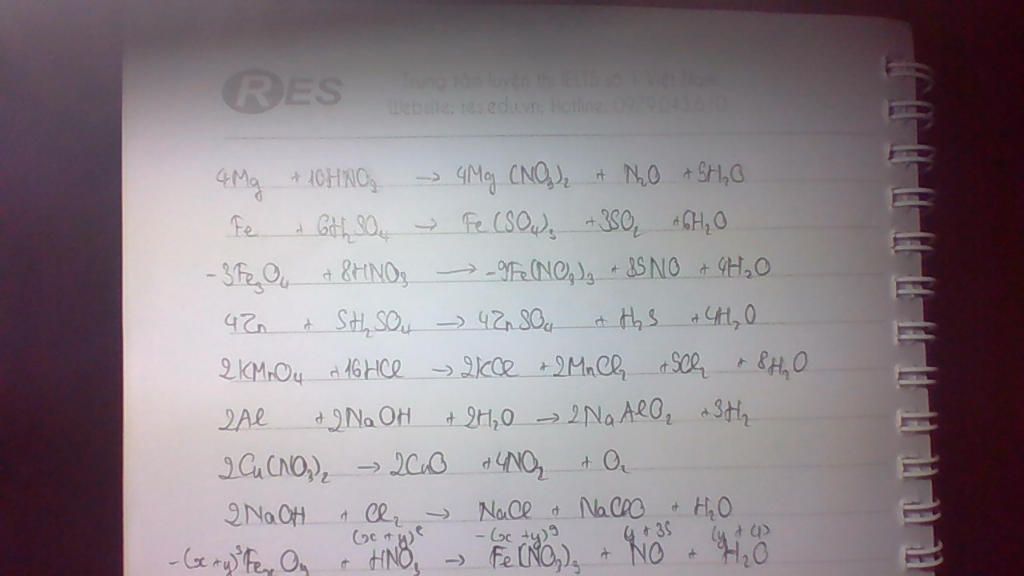 RES
Trung tâm luyện thi IELTS số 1 Việt Nam
Website: res.edu.vn; Hotline: 0979.043.610
4Mg + 10HNO₃ → 4Mg(NO₃)₂ + N₂O + 5H₂O
Fe + 6H₂SO₄ → Fe(SO₄)₃ + 3SO₂ + 6H₂O
-3Fe₃O₄ + 8HNO₃ → -9Fe(NO₃)₃ + 35NO + 4H₂O
4Zn + 5H₂SO₄ → 4ZnSO₄ + H₂S + 4H₂O
2KMnO₄ + 16HCl → 2KCl + 2MnCl₂ + 5Cl₂ + 8H₂O
2Al + 2NaOH + 2H₂O → 2NaAlO₂ + 3H₂
2Cu(NO₃)₂ → 2CuO + 4NO₂ + O₂
2NaOH + Cl₂ → NaCl + NaClO + H₂O
-(x+y)³FeₓOᵧ + (x+y)HNO₃ → -(x+y)⁹Fe(NO₃)₃ + NO + H₂O